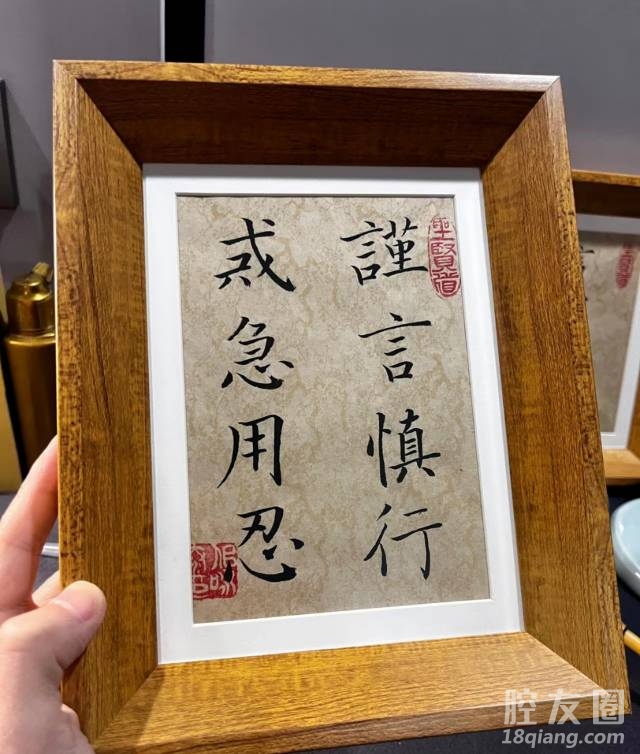 謹言慎行
戒急用忍
聖賢道
腔友圈
18qiang.com